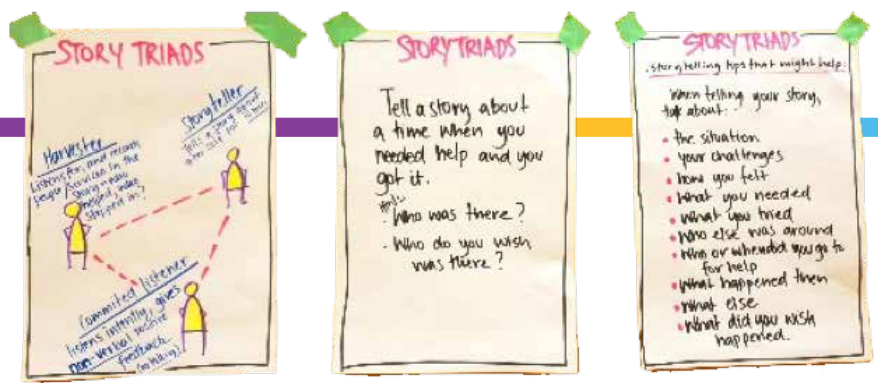 STORY TRIADS
Storyteller
tells a story about
Harvester
listens for, and records
people/services in the
story - who
helped, who
stepped in?
Commited listener
listens intently, gives
non-verbal positive
feedback
(no talking)
STORY TRIADS
Tell a story about
a time when you
needed help and you
got it.
- Who was there?
- Who do you wish
was there?
STORY TRIADS
Storytelling tips that might help:
When telling your story,
talk about:
• the situation
• your challenges
• how you felt
• what you needed
• what you tried
• who else was around
• who or where did you go to
for help
• what happened then
• what else
• what did you wish
happened.